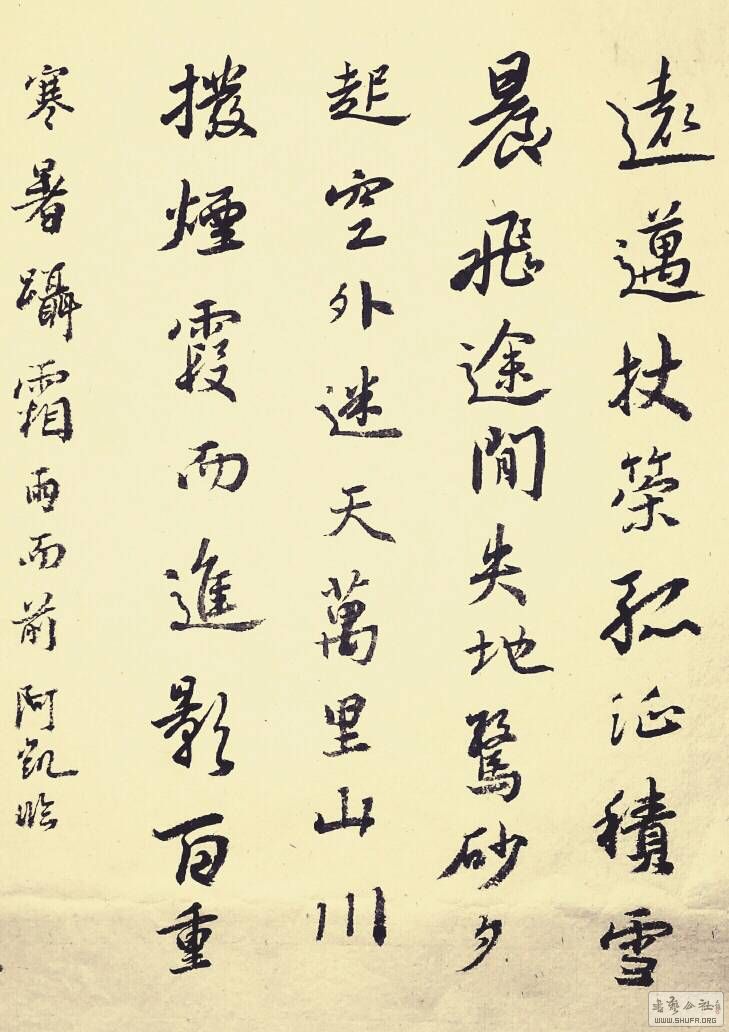 遠邁杖策孤征積雪
晨飛途間失地驚砂夕
起空外迷天萬里山川
撥煙霞而進影百重
寒暑躡霜雨而前阿凱臨
書藝公社
WWW.SHUFA.ORG